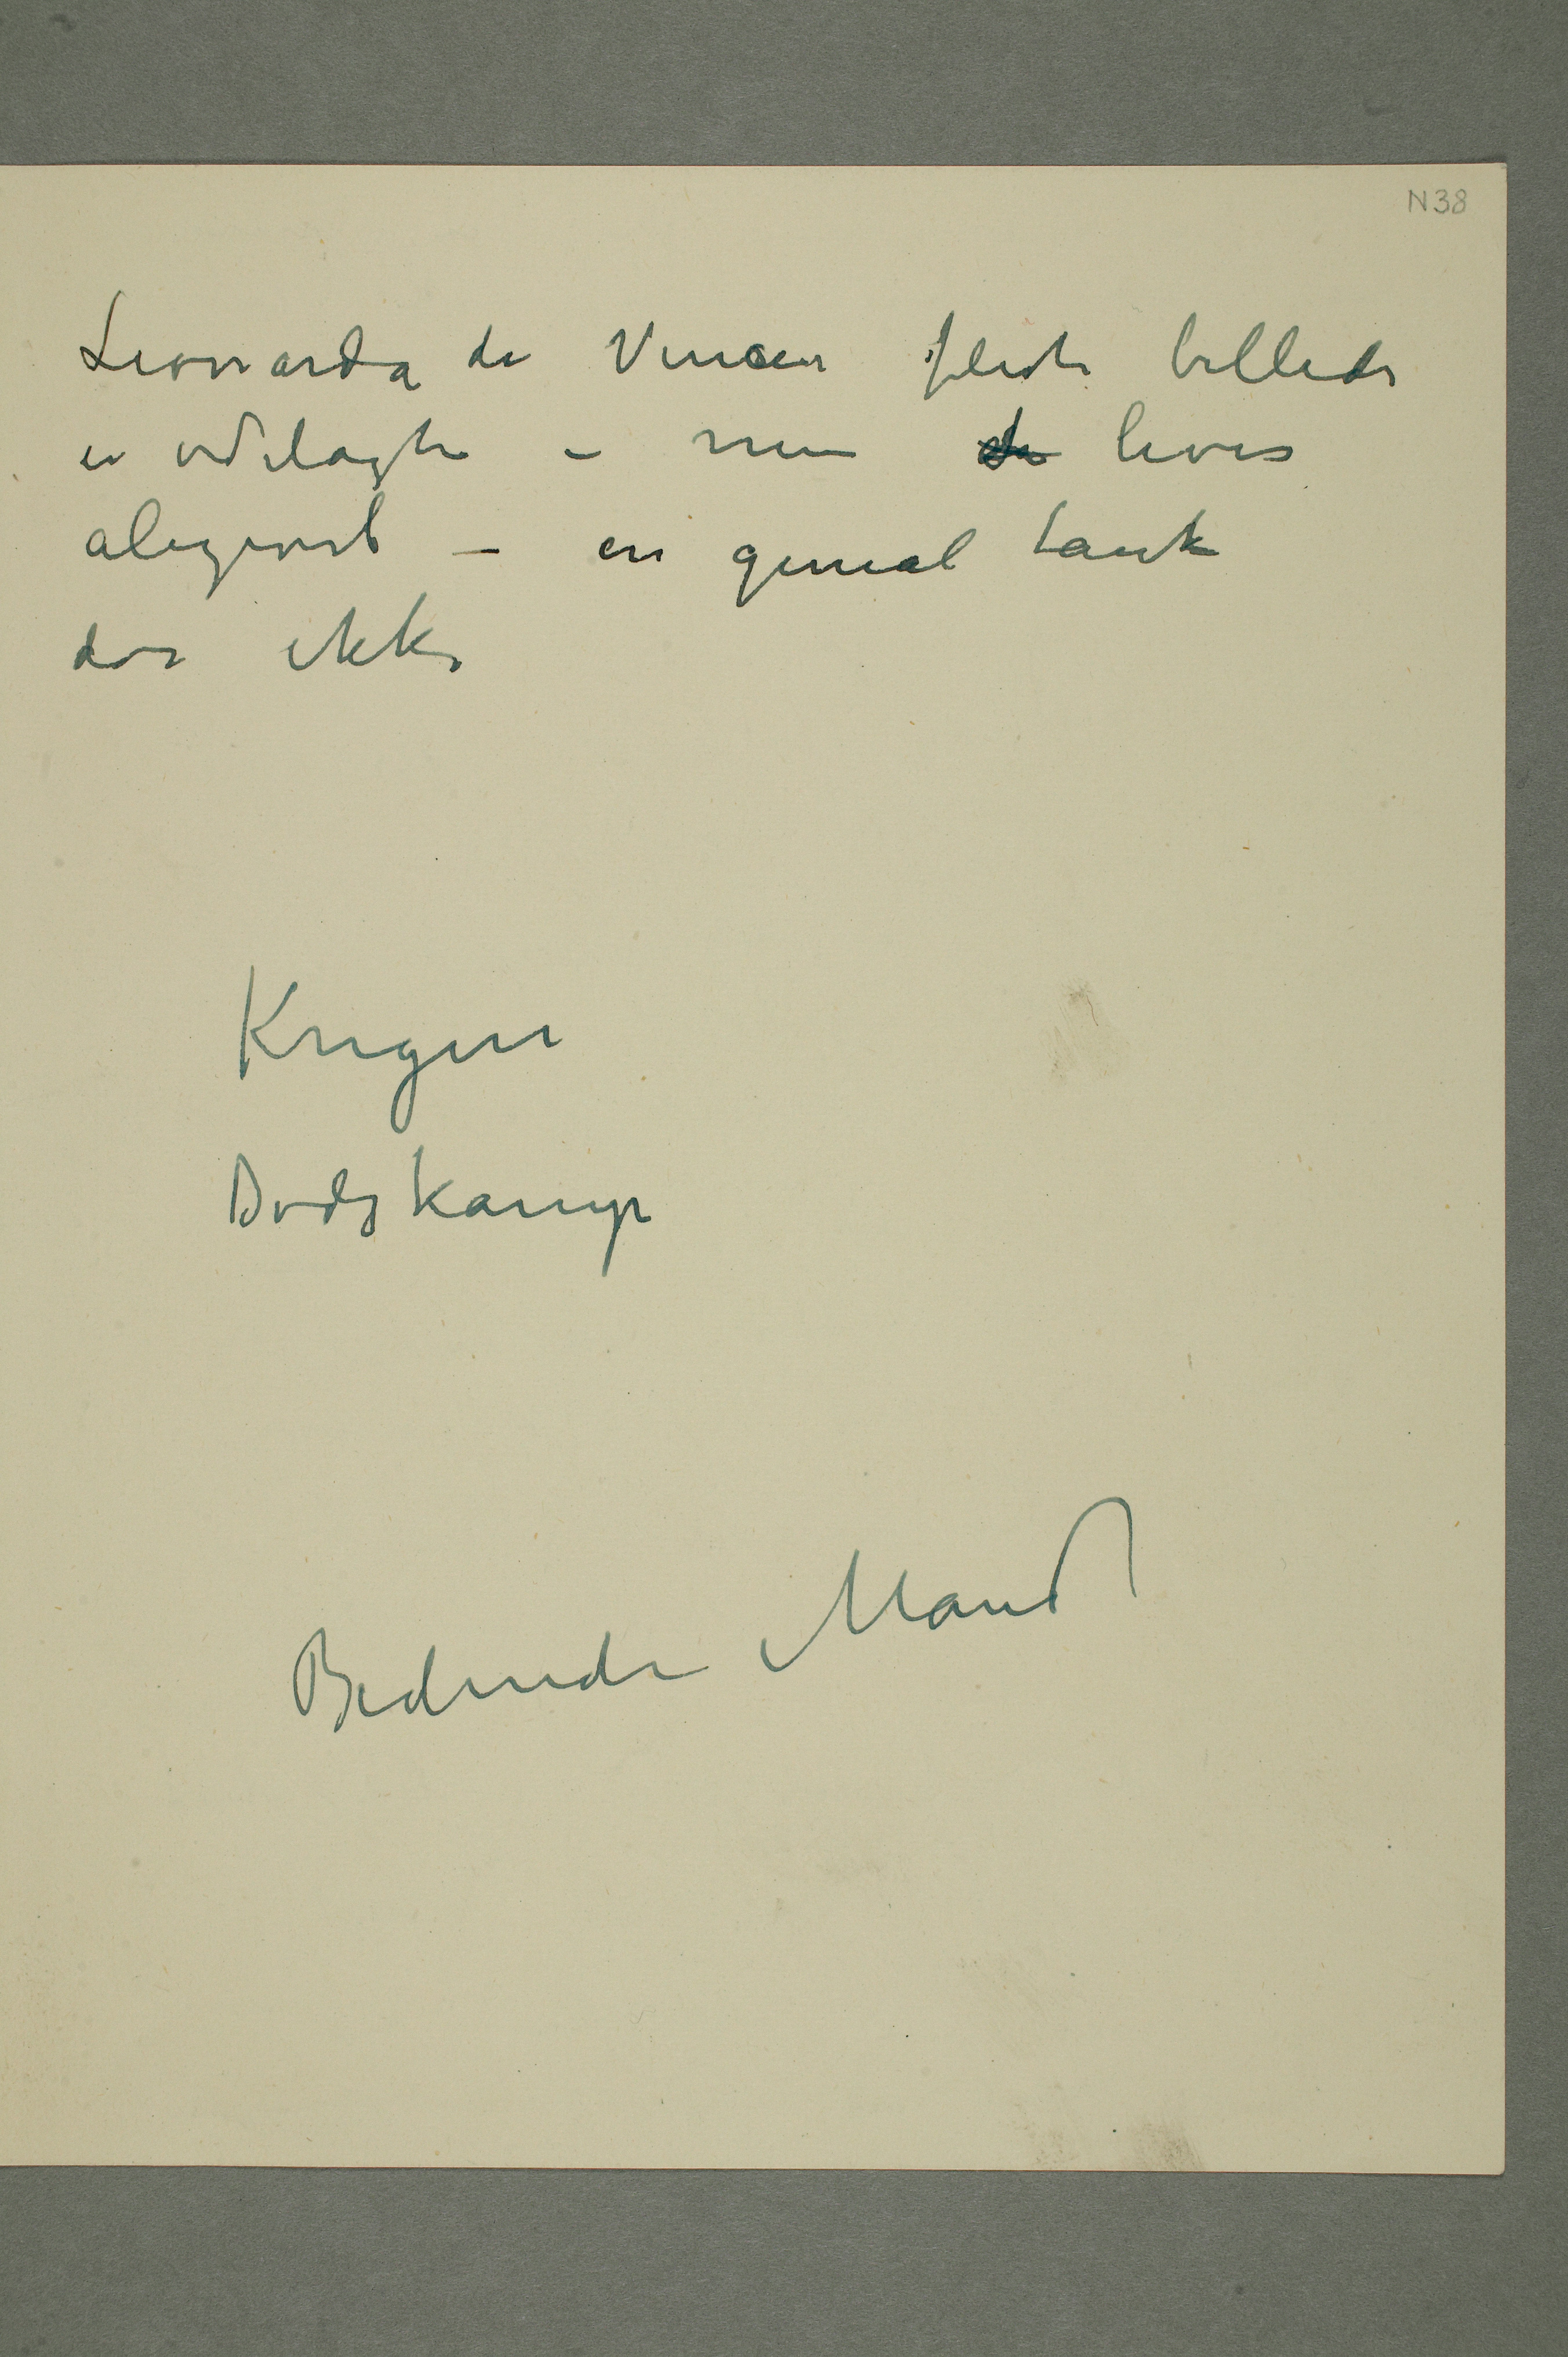 N38
Leonarda de Vincis fleste billeder
er ødelagte – men de lever
aligevel – en genial tanke
dør ikke
Krigen
Dødskamp
Bedende Mand